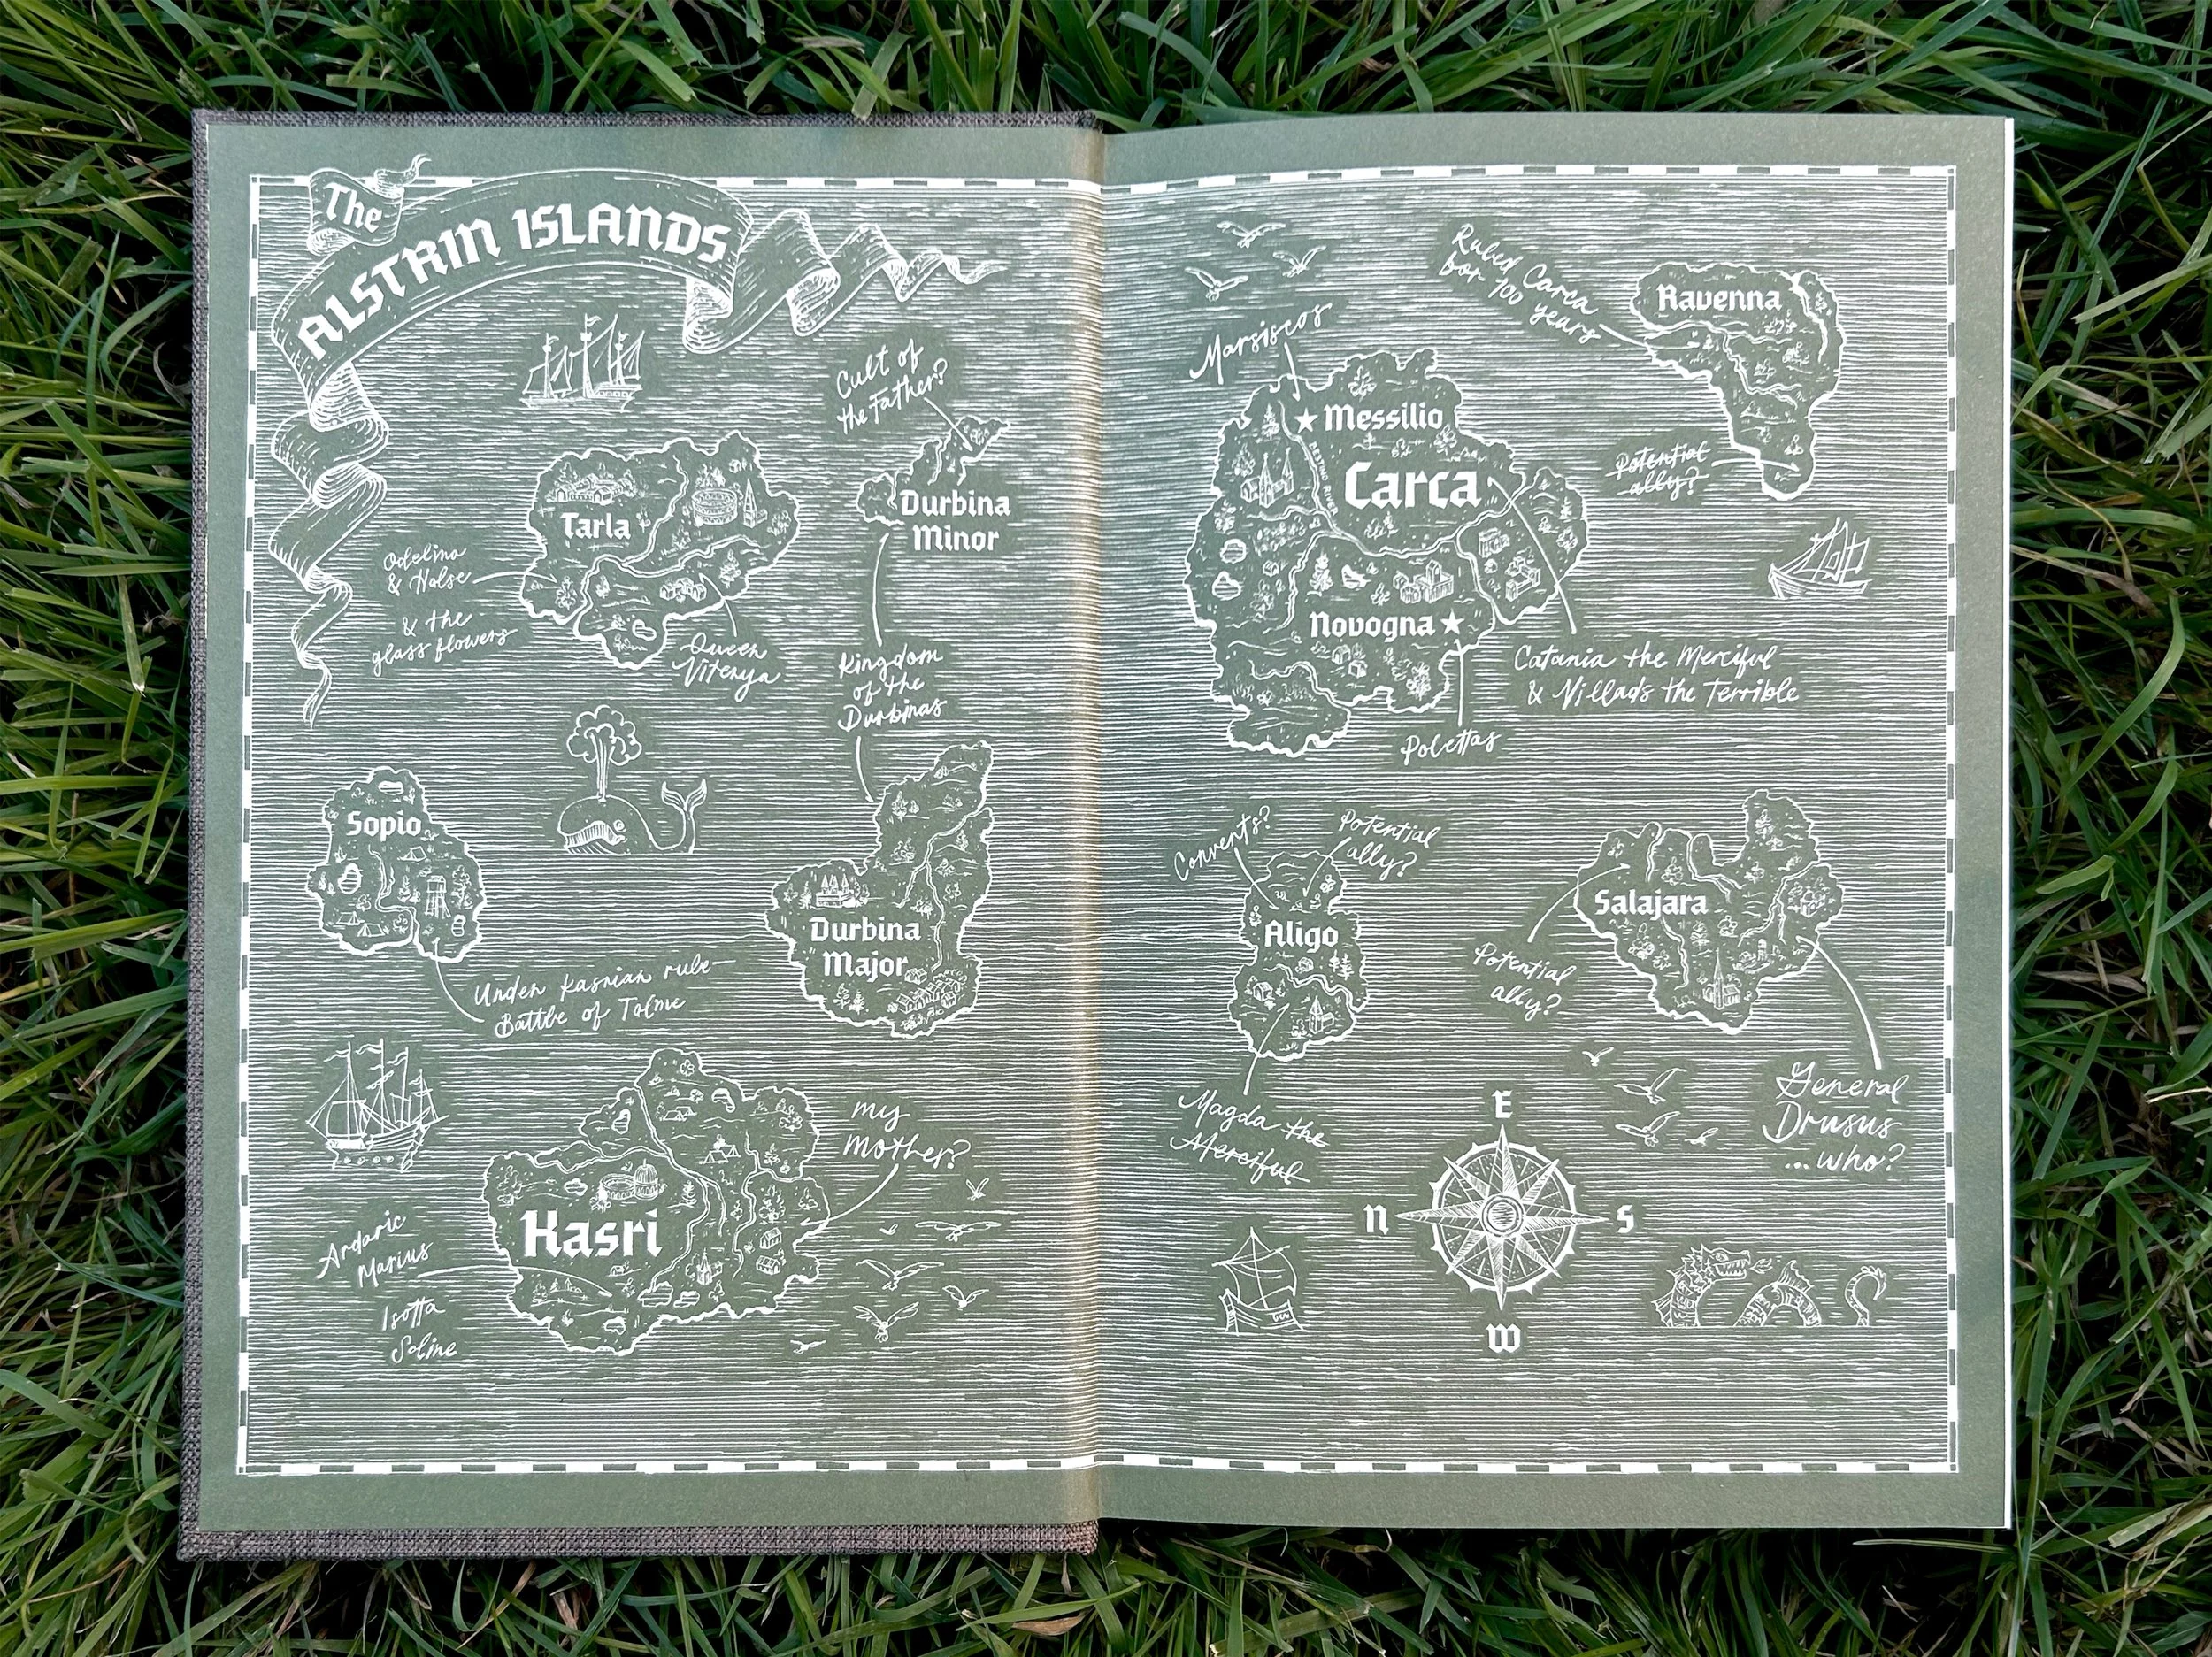 The
ALSTRIN ISLANDS
Cult of
the Father?
Durbina
Minor
Tarla
Odelina
& Halse
& the
glass flowers
Queen
Vitenya
Kingdom
of the
Durbinas
Sopio
Under Kasrian rule—
Battle of Tolme
Durbina
Major
my
mother?
Kasri
Ardaric
Marius
Isotta
Soline
Marsiscos
Ruled Carca
for 100 years
Ravenna
Potential
ally?
Messilio
Carca
River
Novogna
Catania the Merciful
& Villads the Terrible
Polettas
Convents?
Potential
ally?
Aligo
Magda the
Merciful
Salajara
Potential
ally?
General
Drusus
...who?
E
N
S
W